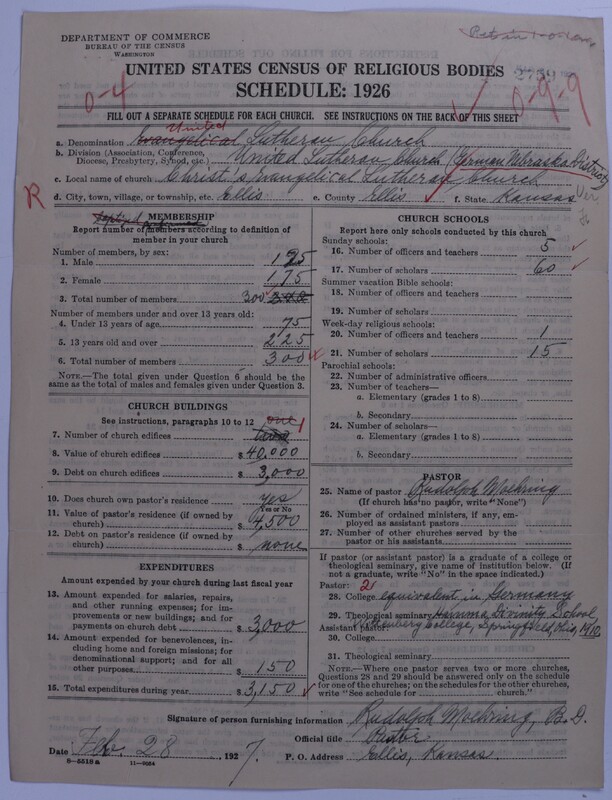 DEPARTMENT OF COMMERCE
BUREAU OF THE CENSUS
WASHINGTON
UNITED STATES CENSUS OF RELIGIOUS BODIES
2759
SCHEDULE: 1926
0-4
0-9-9
FILL OUT A SEPARATE SCHEDULE FOR EACH CHURCH. SEE INSTRUCTIONS ON THE BACK OF THIS SHEET
United
a. Denomination Evangelical Lutheran Church
b. Division (Association, Conference, Diocese, Presbytery, Synod, etc.) United Lutheran Church (German Nebraska District)
c. Local name of church Christ's Evangelical Lutheran Church
R
d. City, town, village, or township, etc. Ellis e. County Ellis f. State Kansas
MEMBERSHIP
Report number of members according to definition of
member in your church
Number of members, by sex:
1. Male 125
2. Female 175
3. Total number of members 300
Number of members under and over 13 years old:
4. Under 13 years of age 75
5. 13 years old and over 225
6. Total number of members 300
NOTE.—The total given under Question 6 should be
same as the total of males and females given under Question 3.
CHURCH BUILDINGS
See instructions, paragraphs 10 to 12
one 1
7. Number of church edifices
8. Value of church edifices $ 40,000
9. Debt on church edifices $ 3,000
10. Does church own pastor's residence yes
Yes or No
11. Value of pastor's residence (if owned by
church) $ 4,500
12. Debt on pastor's residence (if owned by
church) $ none
EXPENDITURES
Amount expended by your church during last fiscal year
13. Amount expended for salaries, repairs,
and other running expenses; for im-
provements or new buildings; and for
payments on church debt $ 3,000
14. Amount expended for benevolences, in-
cluding home and foreign missions; for
denominational support; and for all
other purposes $ 150
15. Total expenditures during year $ 3,150
CHURCH SCHOOLS
Report here only schools conducted by this church
Sunday schools:
16. Number of officers and teachers 5
17. Number of scholars 60
Summer vacation Bible schools:
18. Number of officers and teachers
19. Number of scholars
Week-day religious schools:
20. Number of officers and teachers 1
21. Number of scholars 15
Parochial schools:
22. Number of administrative officers
23. Number of teachers—
a. Elementary (grades 1 to 8)
b. Secondary
24. Number of scholars—
a. Elementary (grades 1 to 8)
b. Secondary
PASTOR
25. Name of pastor Rudolph Moehring
(If church had no pastor, write "None")
26. Number of ordained ministers, if any, em-
ployed as assistant pastors
27. Number of other churches served by the
pastor or his assistants
If pastor (or assistant pastor) is a graduate of a college or
theological seminary, give name of institution below. (If
not a graduate, write "No" in the space indicated.)
Pastor: 2
28. College equivalent in Germany
29. Theological seminary Hamma Divinity School,
Assistant pastor: Wittenberg College, Springfield, Ohio, 1910.
30. College
31. Theological seminary
NOTE.—Where one pastor serves two or more churches,
Questions 28 and 29 should be answered only on the schedule
for one of the churches; on the schedules for the other churches,
write "See schedule for church."
Signature of person furnishing information Rudolph Moehring, B.D.
Official title Pastor
Date Feb. 28, 1927.
P. O. Address Ellis, Kansas.
8-5518 a 11-9054